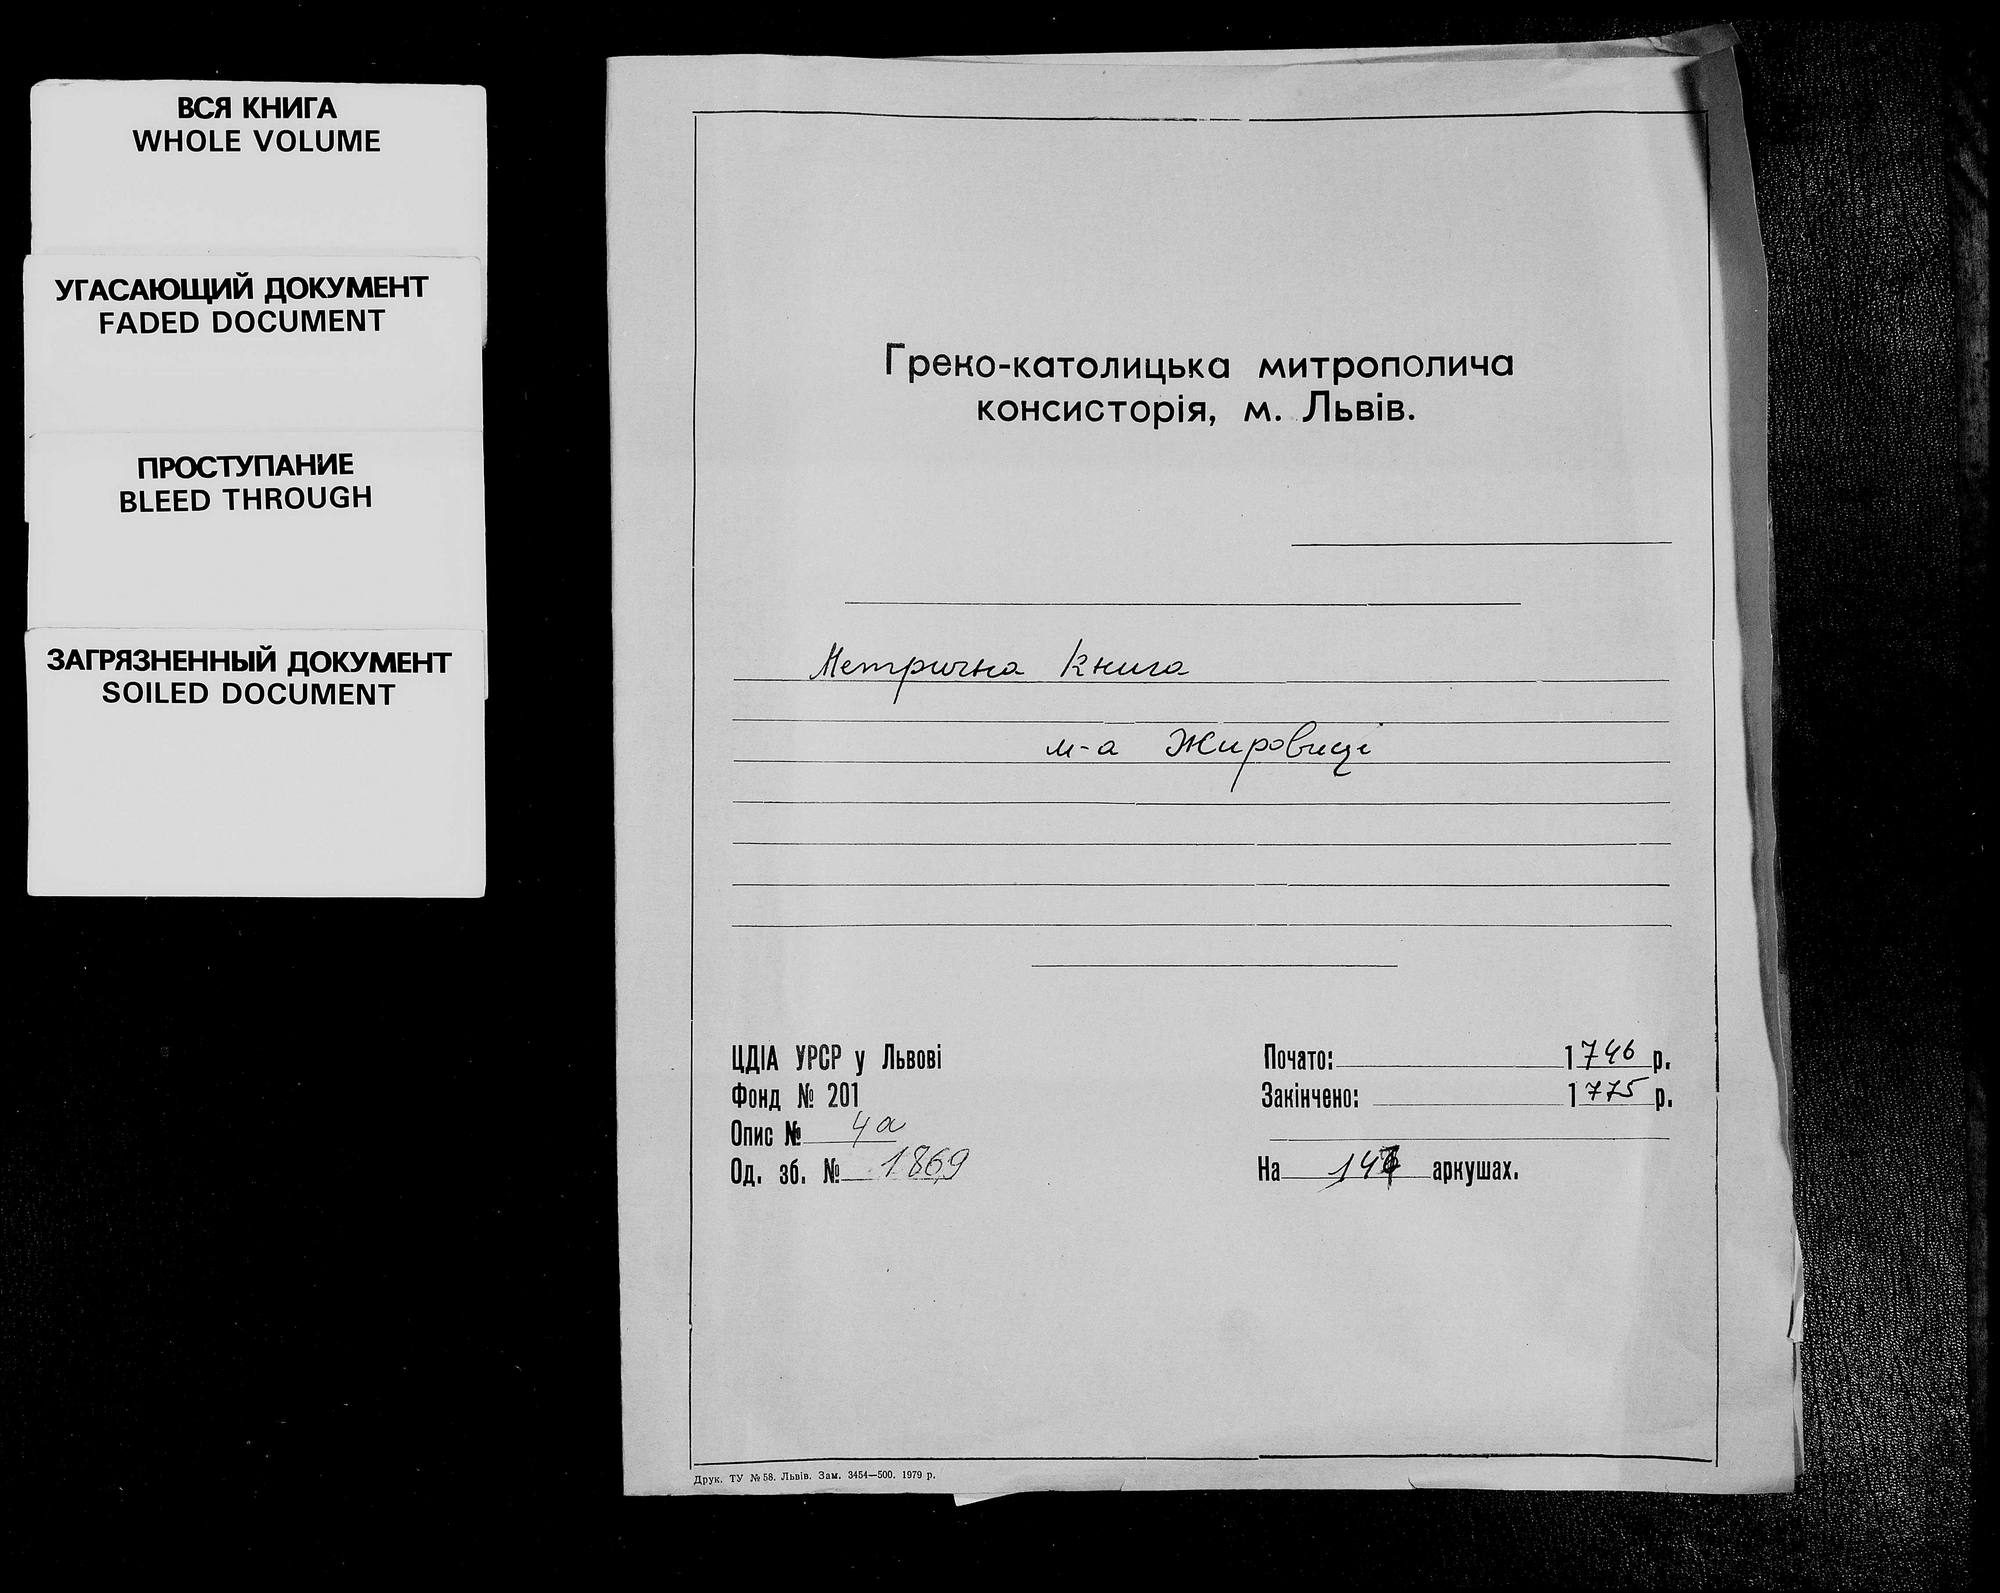 ВСЯ КНИГА
WHOLE VOLUME
УГАСАЮЩИЙ ДОКУМЕНТ
FADED DOCUMENT
ПРОСТУПАНИЕ
BLEED THROUGH
ЗАГРЯЗНЕННЫЙ ДОКУМЕНТ
SOILED DOCUMENT
Греко-католицька митрополича
консисторія, м. Львів.
Метрична книга
м-а Жировиці
ЦДІА УРСР у Львові
Фонд № 201
Опис № 4а
Од. зб. № 1869
Почато: 1746 р.
Закінчено: 1775 р.
На аркушах.
Друк. ТУ № 58. Львів. Зам. 3454—500. 1979 р.